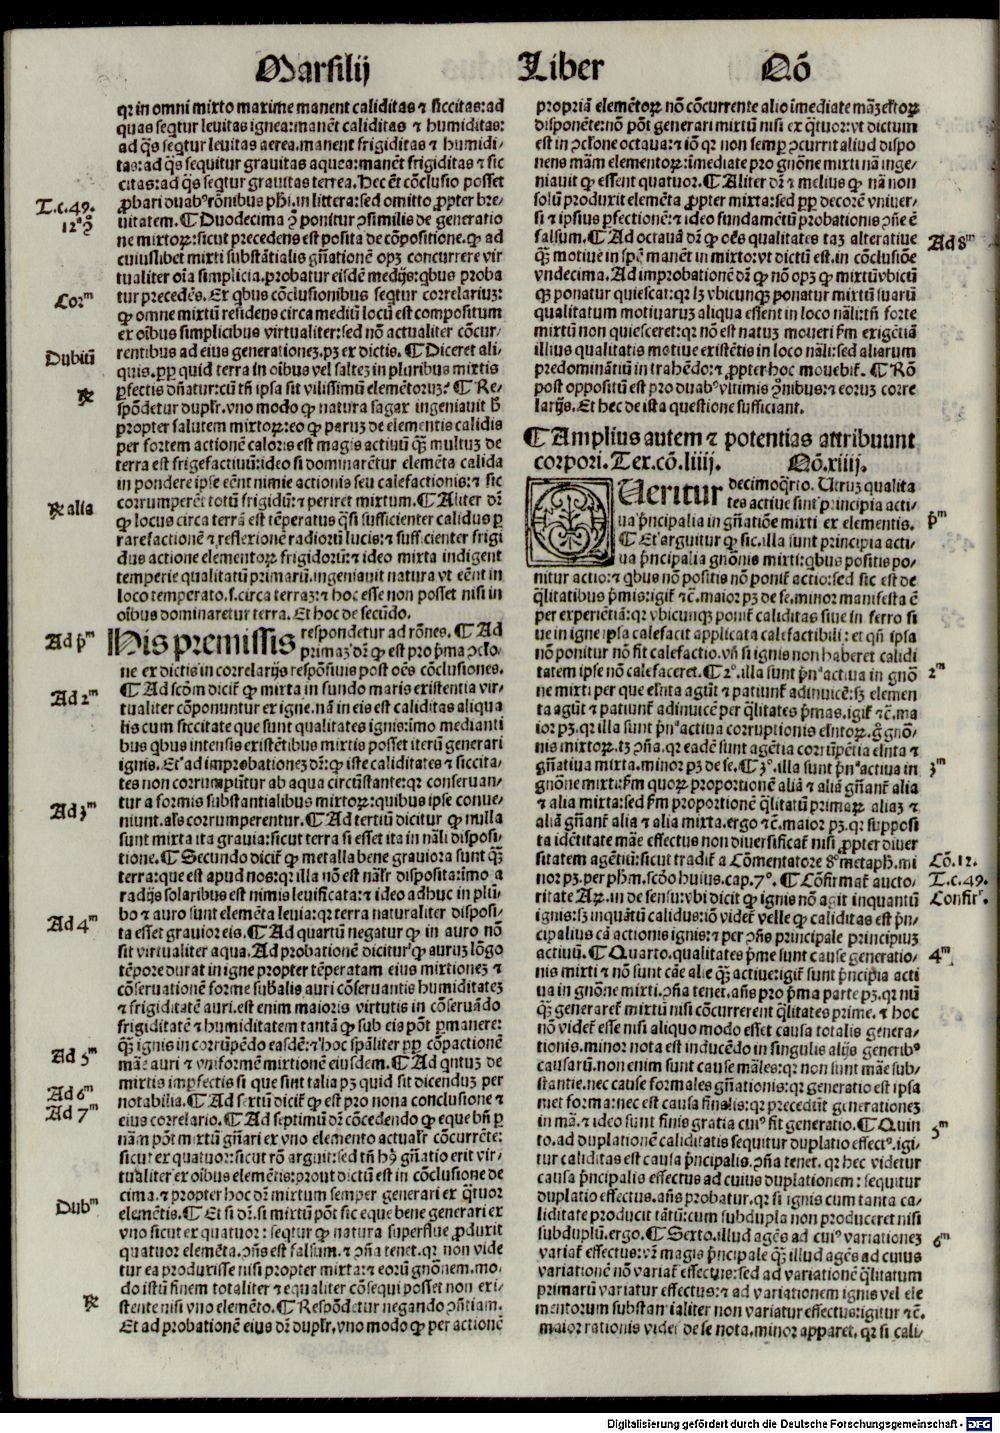 Marsilij Liber Nõ
qꝛ in omni mixto maxime manent caliditas ⁊ siccitas: ad
quas seqtur leuitas ignea: manẽt caliditas ⁊ humiditas:
ad q̃s seqtur leuitas aerea. manent frigiditas ⁊ humidi⸗
tas: ad q̃s sequitur grauitas aquea: manẽt frigiditas ⁊ sic
citas: ad q̃s seqtur grauitas terrea. Hec em̃ cõclusio posset
ꝓbari duabꝰ rõnibus phi. in littera: sed omitto ꝓpter bre⸗
uitatem. ¶ Duodecima ꝯ ponitur ꝯsimilis de generatio
ne mixtoꝝ: sicut precedens est posita de cõpositione. ꝙ ad
cuiuslibet mixti substãtialis gñationẽ opꝫ concurrere vir
tualiter oĩa simplicia. probatur eisdẽ medijs: qbus proba
tur precedẽs. Ex qbus cõclusionibus seqtur correlariuꝫ:
ꝙ omne mixtũ residens circa mediũ locũ est compositum
ex oĩbus simplicibus virtualiter: sed nõ actualiter cõcur⸗
rentibus ad eius generationeꝫ. pꝫ ex dictis. ¶ Diceret ali⸗
quis. ꝓp quid terra in oĩbus vel salteꝫ in pluribus mixtis
ꝑfectis dñatur: cũ tñ ipsa sit vilissimũ elemẽtoruꝫ? ¶ Re⸗
spõdetur duplr̃. vno modo ꝙ natura sagax ingeniauit h̃
propter salutem mixtoꝝ: eo ꝙ paruꝫ de elementis calidis
per fortem actionẽ caloris est magis actiuũ q̃ꝫ multuꝫ de
terra est frigefactiuũ: ideo si dominarẽtur elemẽta calida
in pondere ipse eẽnt nimie actionis seu calefactionis: ⁊ sic
corrumperẽt totũ frigidũ: ⁊ periret mixtum. ¶ Aliter dꝛ̃
ꝙ locus circa terrã est tẽperatus q̃si sufficienter calidus ꝑ
rarefactionẽ ⁊ reflexionẽ radiorũ lucis: ⁊ sufficienter frigi
dus actione elementoꝝ frigidorũ: ⁊ ideo mixta indigent
temperie qualitatũ primarũ. ingeniauit natura vt eẽnt in
loco temperato. s. circa terraꝫ: ⁊ hoc esse non posset nisi in
oĩbus dominaretur terra. Et hoc de secũdo.
His premissis respondetur ad rõnes. ¶ Ad
primaꝫ dꝛ̃ ꝙ est pro p̃ma ꝯclo⸗
ne ex dictis in correlarijs respõsiuis post oẽs cõclusiones.
¶ Ad scðm dicit̃ ꝙ mixta in fundo maris existentia vir⸗
tualiter cõponuntur ex igne. nã in eis est caliditas aliqua
lis cum siccitate que sunt qualitates ignis: imo medianti
bus qbus intensis existẽtibus mixtis posset iterũ generari
ignis. Et ad improbationeꝫ dꝛ̃: ꝙ iste caliditates ⁊ siccita⸗
tes non corrumpũtur ab aqua circũstante: qꝛ conseruan⸗
tur a formis substantialibus mixtoꝝ: quibus ipse conue⸗
niunt. als corrumperentur. ¶ Ad tertiũ dicitur ꝙ nulla
sunt mixta ita grauia: sicut terra si esset ita in nãli disposi⸗
tione. ¶ Secundo dicit̃ ꝙ metalla bene grauiora sunt q̃ꝫ
terra: que est apud nos: qꝛ illa nõ est nãlr̃ disposita: imo a
radijs solaribus est nimis leuificata: ⁊ ideo adhuc in plũ⸗
bo ⁊ auro sunt elemẽta leuia: qꝛ terra naturaliter disposi⸗
ta esset grauior eis. ¶ Ad quartũ negatur ꝙ in auro nõ
sit virtualiter aqua. Ad probationẽ dicitur ꝙ auruꝫ lõgo
tẽpore durat in igne propter tẽperatam eius mixtioneꝫ ⁊
cõseruationẽ forme sub̃alis auri cõseruantis humiditateꝫ
⁊ frigiditatẽ auri. est enim maioris virtutis in cõseruãdo
frigiditatẽ ⁊ humiditatem tantã ꝙ sub eis põt ꝑmanere:
q̃ꝫ ignis in corrũpẽdo easdẽ: ⁊ hoc sp̃aliter pꝑ cõpactionẽ
mãe auri ⁊ vniformẽ mixtionẽ eiusdem. ¶ Ad qntuꝫ de
mixtis imperfectis si que sint talia pꝫ quid sit dicenduꝫ per
notabilia. ¶ Ad sextũ dicit̃ ꝙ est pro nona conclusione ⁊
eius correlario. ¶ Ad septimũ dꝛ̃ cõcedendo ꝙ eque bñ ꝑ
nãm põt mixtũ gñari ex vno elemento actualr̃ cõcurrẽte:
sicut ex quatuor: sicut rõ arguit: sed tñ hꝰ gñatio erit vir⸗
tualiter ex oĩbus elemẽtis: prout dictũ est in cõclusione de
cima. ⁊ propter hoc dꝛ̃ mixtum semper generari ex q̃tuor
elemẽtis. ¶ Et si dꝛ̃. si mixtũ põt sic eque bene generari ex
vno sicut ex quatuor: seqtur ꝙ natura superflue ꝓduxit
quatuor elemẽta. ꝯñs est falsum. ⁊ ꝯña tenet. qꝛ non vide
tur ea produxisse nisi propter mixta: ⁊ eorũ gñonem. mo⸗
do istũ finem totaliter ⁊ equaliter cõsequi posset non exi⸗
stente nisi vno elemẽto. ¶ Respõdetur negando ꝯñtiam.
Et ad probationẽ eius dꝛ̃ duplr̃. vno modo ꝙ per actionẽ
T.c.49.
12ª ꝯ
Corᵐ
Dubiũ
℞
℞ alia
Ad p̃ᵐ
Ad 2ᵐ
Ad ꝫᵐ
Ad 4ᵐ
Ad 5ᵐ
Ad 6ᵐ
Ad 7ᵐ
Dubᵐ
℞
propriã elemẽtoꝝ nõ cõcurrente alio ĩmediate mãꝫ eltoꝝ
disponẽte: nõ põt generari mixtũ nisi ex q̃tuor: vt dictum
est in ꝯclone octaua: ⁊ iõ qꝛ non semp̃ ꝯcurrit aliud dispo
nens mãm elementoꝝ: ĩmediate pro gnõne mixti nã inge⸗
niauit ꝙ essent quatuor. ¶ Aliter dꝛ̃ ⁊ melius ꝙ nã non
solũ produxit elemẽta ꝓpter mixta: sed pꝑ decorẽ vniuer⸗
si ⁊ ipsius ꝑfectionẽ: ⁊ ideo fundamẽtũ probationis ꝯñe ẽ
falsum. ¶ Ad octauã dꝛ̃ ꝙ oẽs qualitates taꝫ alteratiue
q̃ꝫ motiue in spẽ manẽt in mixto: vt dictũ est. in cõclusiõe
vndecima. Ad improbationẽ dꝛ̃ ꝙ nõ opꝫ ꝙ mixtũ vbicũ
q̃ꝫ ponatur quiescat: qꝛ lꝫ vbicunqꝫ ponatur mixtũ suarũ
qualitatum motiuaruꝫ aliqua essent in loco nãli: tñ forte
mixtũ non quiesceret: qꝛ nõ est natuꝫ moueri fm̃ exigẽtiã
illius qualitatis motiue existẽtis in loco nãli: sed aliarum
predominãtiũ in trahẽdo: ⁊ ꝓpter hoc mouebit̃. ¶ Rõ
post oppositũ est pro duabꝰ vltimis ꝯnibus: ⁊ eoruꝫ corre
larijs. Et hec de ista questione sufficiant.
¶ Amplius autem ⁊ potentias attribuunt
corpori. Tex. cõ. liiij. Nõ. xiiij.
Queritur decimoq̃rto. Utruꝫ qualita
tes actiue sint principia acti⸗
ua p̃ncipalia in gñatiõe mixti ex elementis.
¶ Et arguitur ꝙ sic. illa sunt principia acti⸗
ua p̃ncipalia gnõnis mixti: qbus positis po⸗
nitur actio: ⁊ qbus nõ positis nõ ponit̃ actio: sed sic est de
q̃litatibus p̃mis: igit̃ ⁊c̃. maior pꝫ de se. minor manifesta ẽ
per experiẽtiã: qꝛ vbicunqꝫ ponit̃ caliditas siue in ferro si
ue in igne ipsa calefacit applicata calefactibili: et qñ ipsa
nõ ponitur nõ fit calefactio. vñ si ignis non haberet calidi
tatem ipse nõ calefaceret. ¶ 2º. illa sunt p̃nª actiua in gnõ
ne mixti per que elñta agũt ⁊ patiunt̃ adinuicẽ: sꝫ elemen
ta agũt ⁊ patiunt̃ adinuicẽ per q̃litates p̃mas. igit̃ ⁊c̃. ma
ior pꝫ. qꝛ illa sunt p̃nª actiua corruptionis elñtoꝝ. g̊ gnõ⸗
nis mixtoꝝ. tꝫ ꝯña. qꝛ eadẽ sunt agẽtia corrũpẽtia elñta ⁊
gñatiua mixta. minor pꝫ de se. ¶ ꝫº. illa sunt p̃nª actiua in
gnõne mixta: fm̃ quoꝝ proportionẽ aliã ⁊ aliã gñant̃ alia
⁊ alia mixta: sed fm̃ proportionẽ q̃litatũ primaꝝ aliaꝫ ⁊
aliã gñant̃ alia ⁊ alia mixta. ergo ⁊c̃. maior pꝫ. qꝛ supposi
ta idẽtitate mãe effectus non diuersificat̃ nisi ꝓpter diuer
sitatem agẽtiũ: sicut tradit̃ a Cõmentatore 8º metaph. mi
nor pꝫ. per phm̃. scðo huius. cap. 7º. ¶ Cõfirmat̃ aucto⸗
ritate Aꝝ. in de sensu: vbi dicit ꝙ ignis nõ agit inquantũ
ignis: sꝫ inquãtũ calidus: iõ videt̃ velle ꝙ caliditas est p̃n⸗
cipalius cã actionis ignis: ⁊ per ꝯñs principale principiuꝫ
actiuũ. ¶ Quarto. qualitates p̃me sunt cause generatio⸗
nis mixti ⁊ nõ sunt cãe alie q̃ꝫ actiue: igit̃ sunt p̃ncipia acti
ua in gnõne mixti. ꝯña tenet. añs pro p̃ma parte pꝫ. qꝛ nũ
q̃ꝫ generaret̃ mixtũ nisi cõcurrerent q̃litates prime. ⁊ hoc
nõ videt̃ esse nisi aliquo modo esset causa totalis genera⸗
tionis. minor nota est inducẽdo in singulis alijs generibꝰ
causarũ. non enim sunt cause mãles: qꝛ non sunt mãe sub⸗
stantie. nec cause formales gñationis: qꝛ generatio est ipsa
met forma: nec est causa finalis: qꝛ precedũt generationeꝫ
in mã. ⁊ ideo sunt finis gratia cuiꝰ fit generatio. ¶ Quin
to. ad duplationẽ caliditatis sequitur duplatio effectꝰ. igi⸗
tur caliditas est causa p̃ncipalis. ꝯña tenet. qꝛ hec videtur
causa p̃ncipalis effectus ad cuius duplationem: sequitur
duplatio effectus. añs probatur. qꝛ si ignis cum tanta ca⸗
liditate producit tãtũ: cum subdupla non produceret nisi
subduplũ. ergo. ¶ Sexto. illud agẽs ad cuiꝰ variationeꝫ
variat̃ effectus: vr̃ magis p̃ncipale q̃ꝫ illud agẽs ad cuius
variationẽ nõ variat̃ effectus: sed ad variationẽ q̃litatum
primarũ variatur effectus: ⁊ ad variationem ignis vel ele
mentorum substantialiter non variatur effectus: igitur ⁊c̃.
maior rationis videt̃ de se nota. minor apparet. qꝛ si cali⸗
Ad 8ᵐ
p̃ᵐ
2ᵐ
ꝫᵐ
Cõ. 12.
T.c.49.
Confirᵉ.
4ᵐ
5ᵐ
6ᵐ
Digitalisierung gefördert durch die Deutsche Forschungsgemeinschaft - DFG